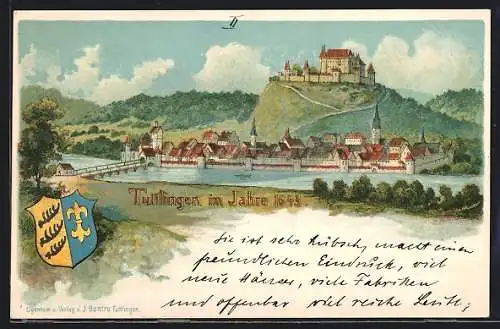 II
Tuttlingen im Jahre 1643
Sie ist sehr hübsch, macht einen
freundlichen Eindruck, viel
neue Häuser, viele Fabriken
und offenbar viel reiche Leute;
Eigentum u. Verlag v. J. Tuttlingen.